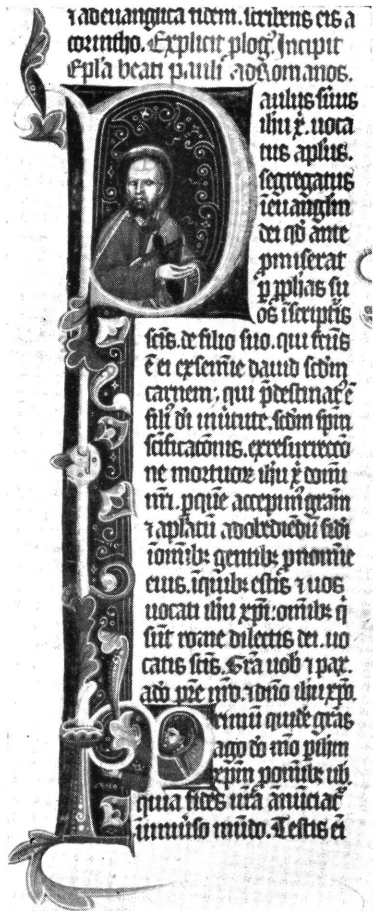 ⁊ad euangłica fidem. scribens eis a
corintho. Explicit plog'. Incipit
Epła beati pauli. ad Romanos.
Paulus suus
ihu x̄. uoca
tus apłus.
segregatus
ī euanglm
dei qđ ante
pmiserat
p pphas su
os ī scripturis
scīs. de filio suo. qui fcūs
ē ei ex semine dauid scdm
carnem. qui p̄destinat' ē
fili' di in uirtute. scdm spm
scificacōnis. ex resurrectō
ne mortuor̄ ihu x̄ domi
nri. p quē accepim' grām
⁊ aplatū ad obediēdū fidi
ī omīb; gentib; p nomine
eius. ī quib; estis ⁊ uos
uocati ihu xpi. omīb; q̄
sūt rome dilectis dei. uo
catis scīs. Grā uob ⁊ pax.
a dō pre nrō. ⁊ dn̄o ihu xpo.
Primū quidē grās
ago dō meo p ihm
xpm p omīb; uob.
quia fides urā annūciat'
ī uniuerso mūdo. Testis eī